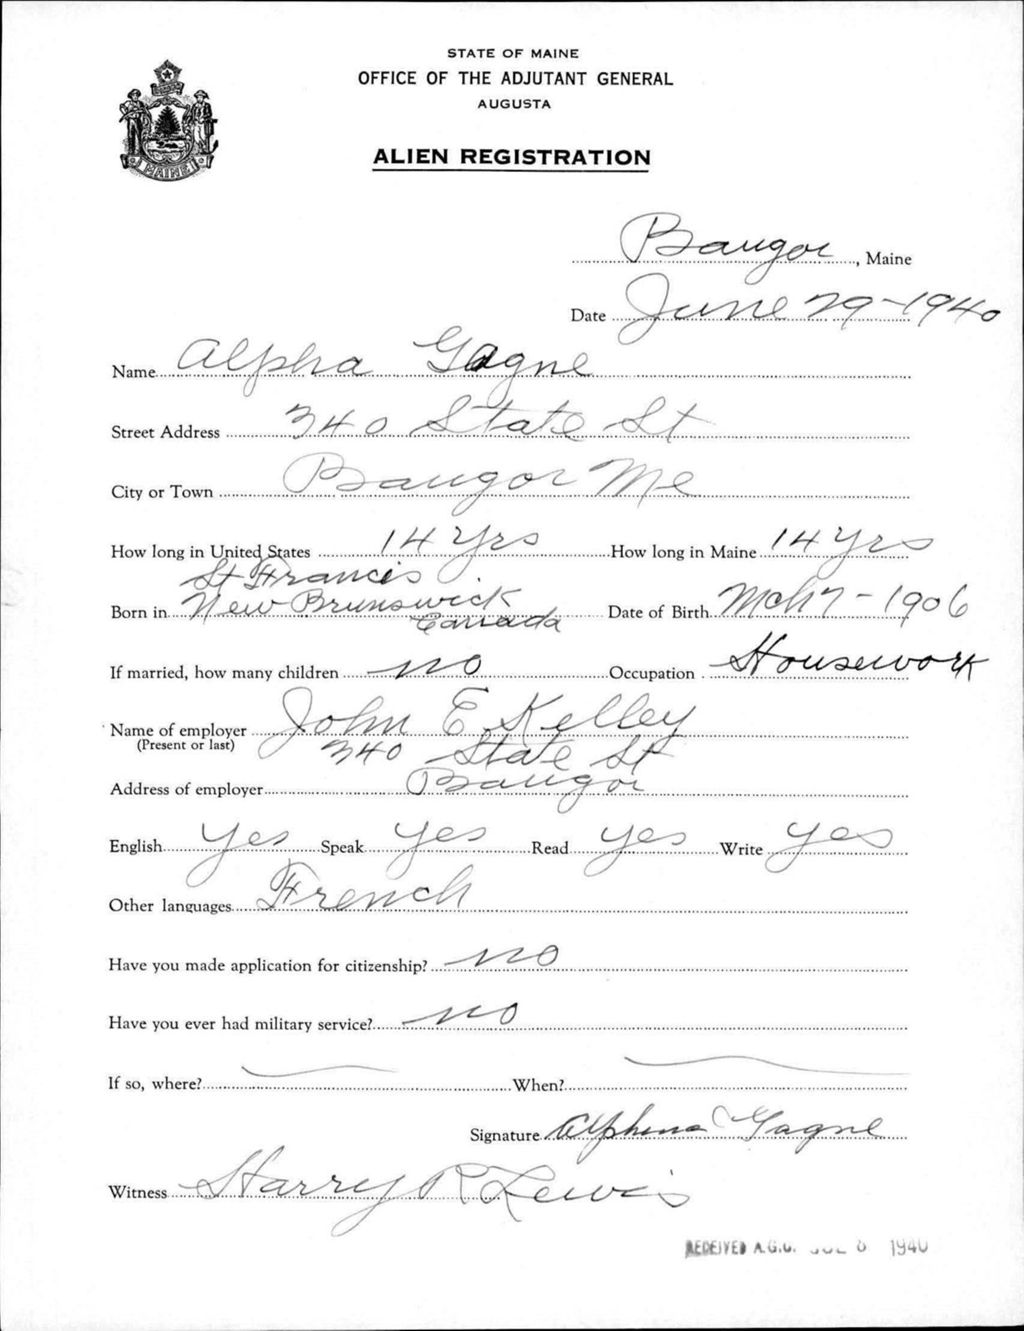 STATE OF MAINE
OFFICE OF THE ADJUTANT GENERAL
AUGUSTA
ALIEN REGISTRATION
MAINE
Bangor, Maine
Date June 29-1940
Name Alpha Gagne
Street Address 340 State St
City or Town Bangor Me
How long in United States 14 Yrs How long in Maine 14 Yrs
St Francis
Born in New Brunswick Date of Birth Mch 7-1906
Canada
If married, how many children no Occupation Housework
Name of employer John E Kelley
(Present or last) 340 State St
Address of employer Bangor
English yes Speak yes Read yes Write yes
Other languages French
Have you made application for citizenship? no
Have you ever had military service? no
If so, where? When?
Signature Alphena Gagne
Witness Harry R Lewis
RECEIVED A.G.O. JUL 8 1940